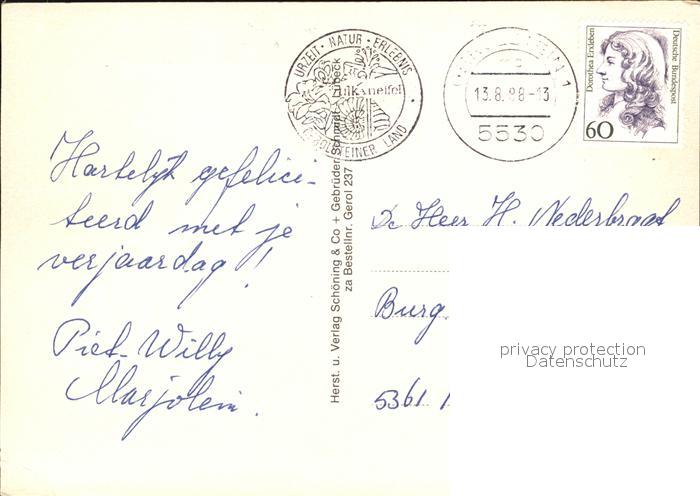 Hartelijk gefelici-
teerd met je
verjaardag!
Piet-Willy
Marjolein.
URZEIT · NATUR · ERLEBNIS
Vulkaneifel
GEROLSTEINER LAND
13.8.88-13
5530
Dorothea Erxleben
Deutsche Bundespost
60
Herst. u. Verlag Schöning & Co + Gebrüder Schmidt
za Bestellnr. Gerol 237
De Heer H. Nederbraat
Burg.
5361
privacy protection
Datenschutz